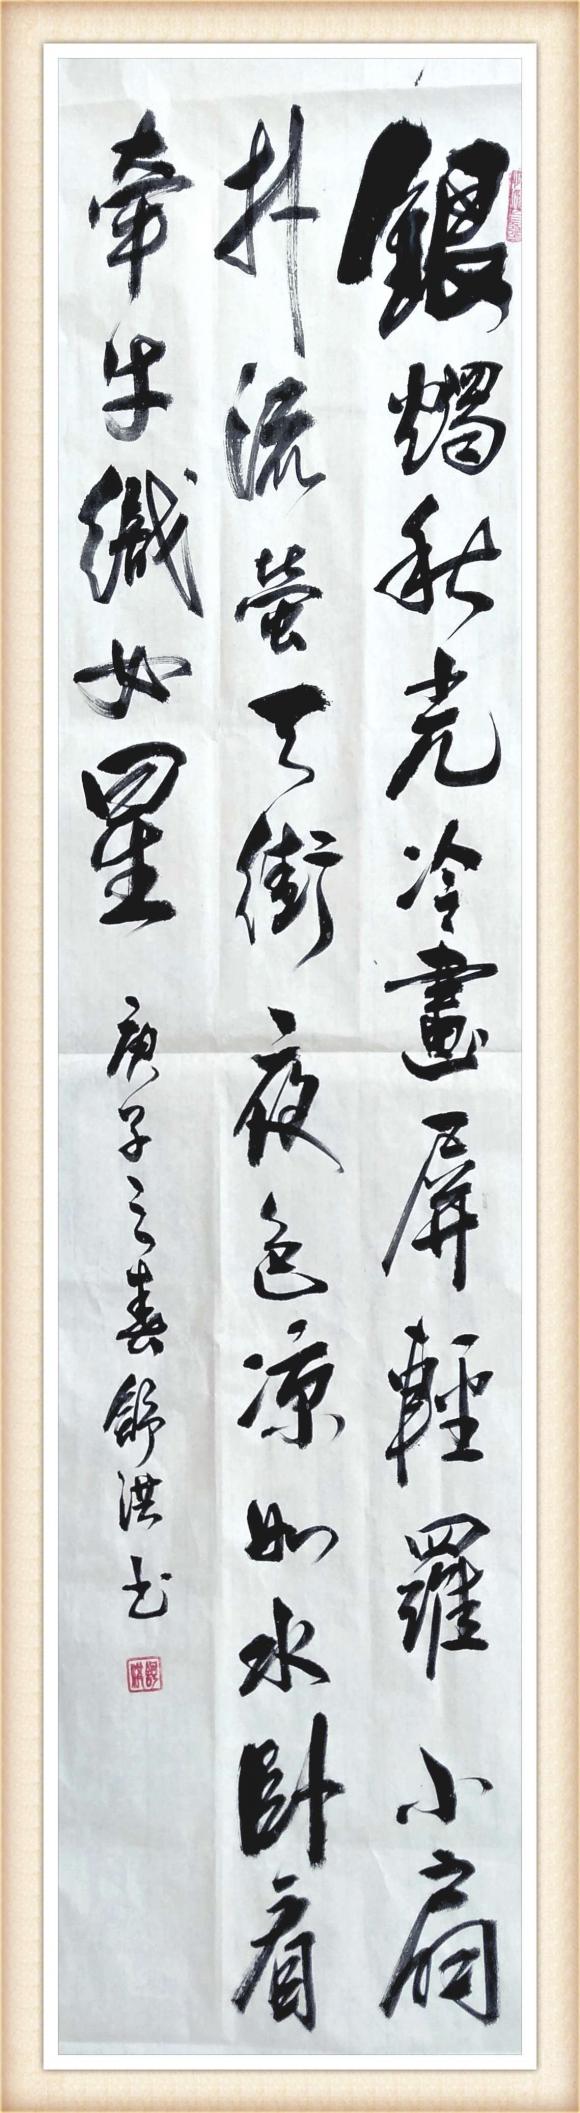 銀燭秋光冷畫屏輕羅小扇
扑流螢天街夜色凉如水卧看
牽牛織女星
庚子之春舒洪书
舒洪